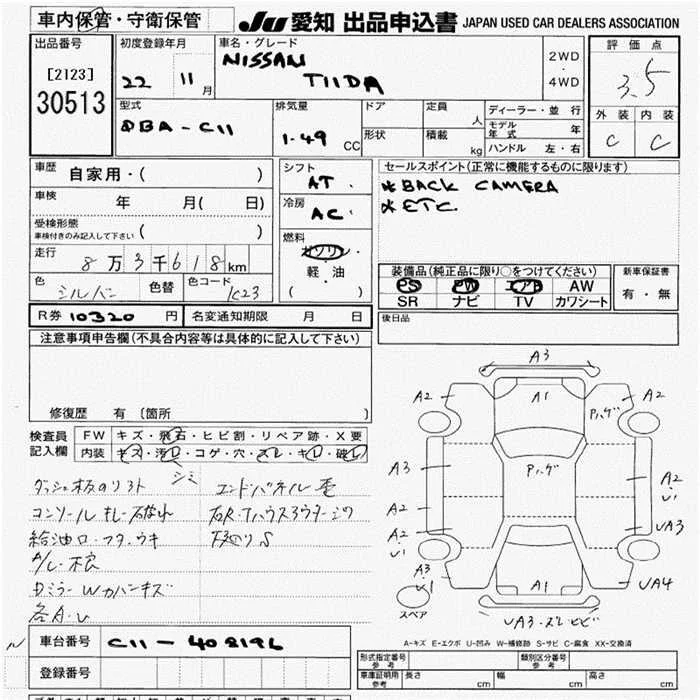 車内保管・守衛保管 JU 愛知 出品申込書 JAPAN USED CAR DEALERS ASSOCIATION
出品番号
[2123]
30513
初度登録年月
22 11 月
車名・グレード
NISSAN TIIDA
2WD
・
4WD
評価点
3.5
外装 内装
C C
型式
DBA-C11
排気量
1.49 CC
ドア
形状
定員 人
積載 kg
ディーラー・並行
モデル年式 年
ハンドル 左・右
車歴
自家用・( )
車検 年 月( 日)
受検形態
車検付きのみ記入して下さい ( )
走行 8万3千618km
色 シルバー 色替 色コード K23
シフト
AT
冷房
AC
燃料
ガソリン
軽・油
( )
セールスポイント(正常に機能するものに限ります)
*BACK CAMERA
*ETC.
装備品(純正品に限り○をつけてください)
PS PW エアB AW
SR ナビ TV カワシート
新車保証書
有・無
R券 10320 円 名変通知期限 月 日
後日品
注意事項申告欄(不具合内容等は具体的に記入して下さい)
修復歴 有 〔箇所 〕
検査員記入欄
FW キズ・飛石・ヒビ割・リペア跡・X要
内装 キズ・汚レ・コゲ・穴・スレ・キレ・破レ
シミ
コンソール
給油口・フタ・ウキ
Dミラー Wカバーキズ
各A.U
A3
A2 A1 A2
パハゲ
A3 Pハゲ A2
U1
A2
A2 UA3
U1
A3
U1 A1 UA4
スペア
UA3・ズレ・ヒビ
A-キズ E-エクボ U-凹み W-補修跡 S-サビ C-腐食 XX-交換済
車台番号 C11-408196
登録番号
形式指定番号 参考
類別区分番号 参考
車庫証明用 参考 長さ cm 幅 cm 高さ cm